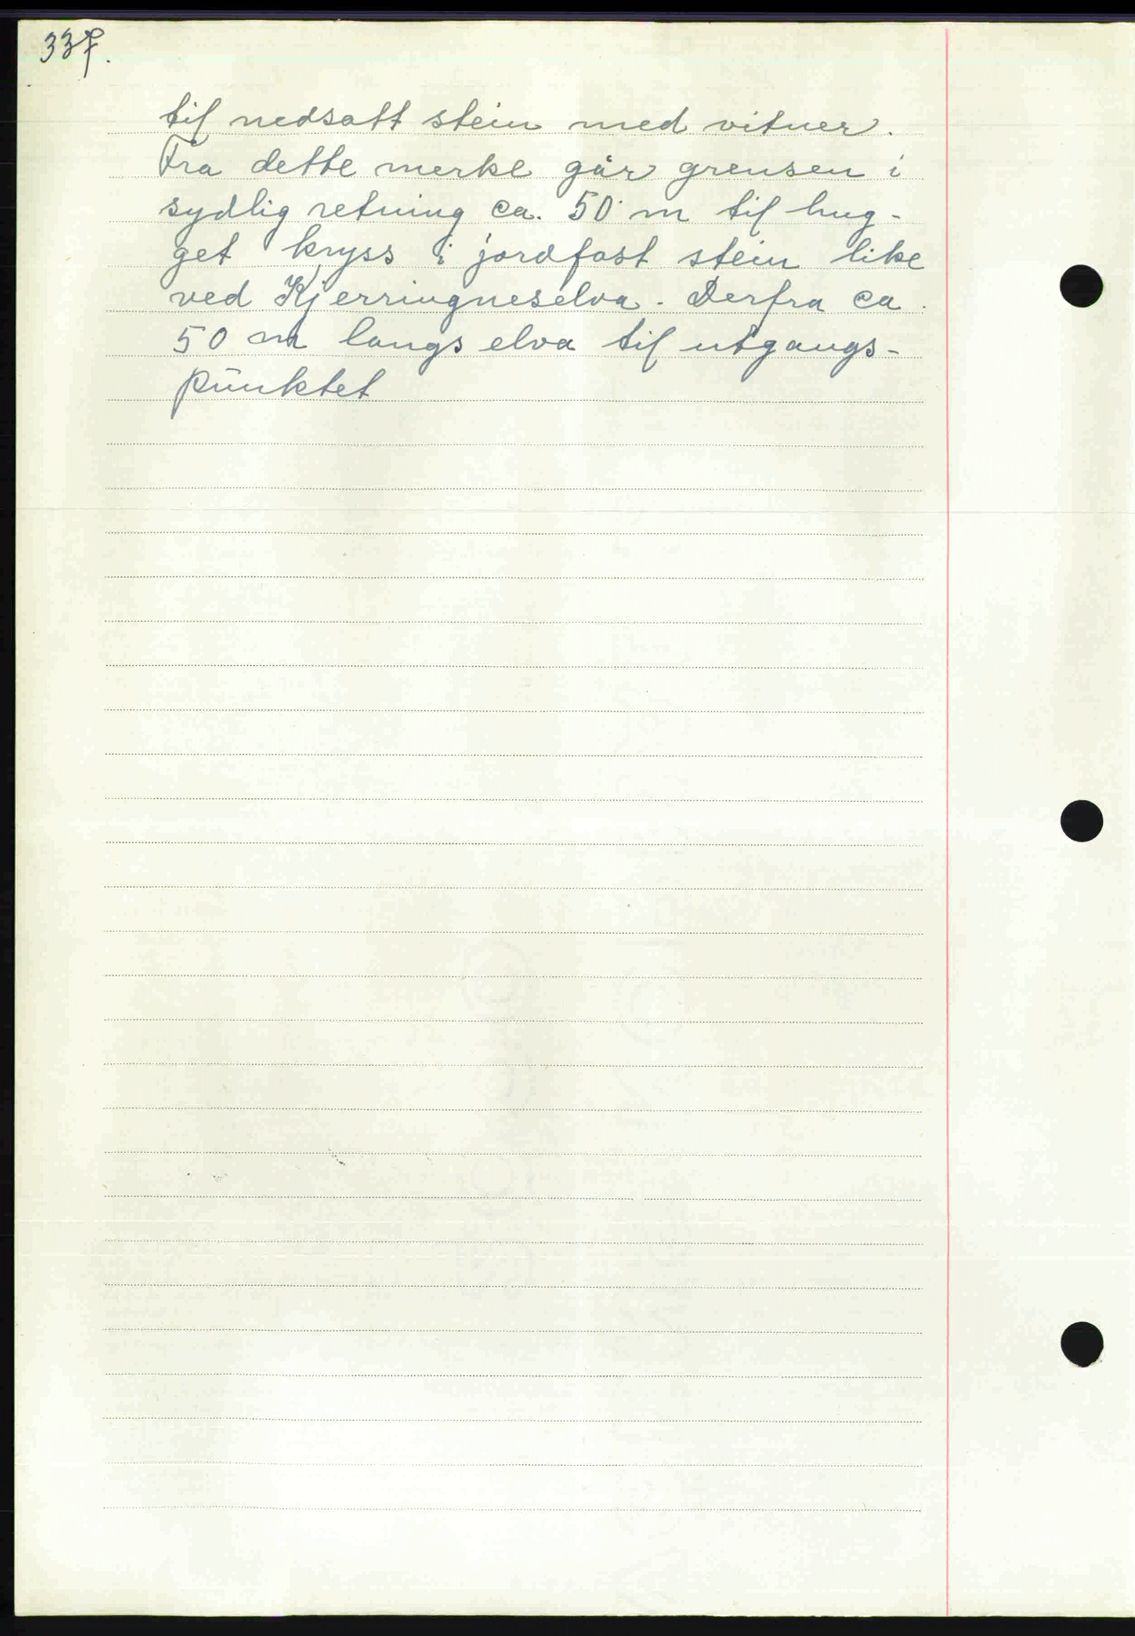 337.
til nedsatt stein med vitner.
Fra dette merke går grensen i
sydlig retning ca. 50 m til hug-
get kryss i jordfast stein like
ved Kjerringneselva. Derfra ca.
50 m langs elva til utgangs-
punktet